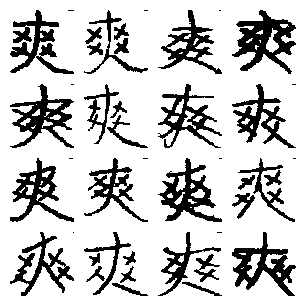 爽爽爽爽
爽爽爽爽
爽爽爽爽
爽爽爽爽